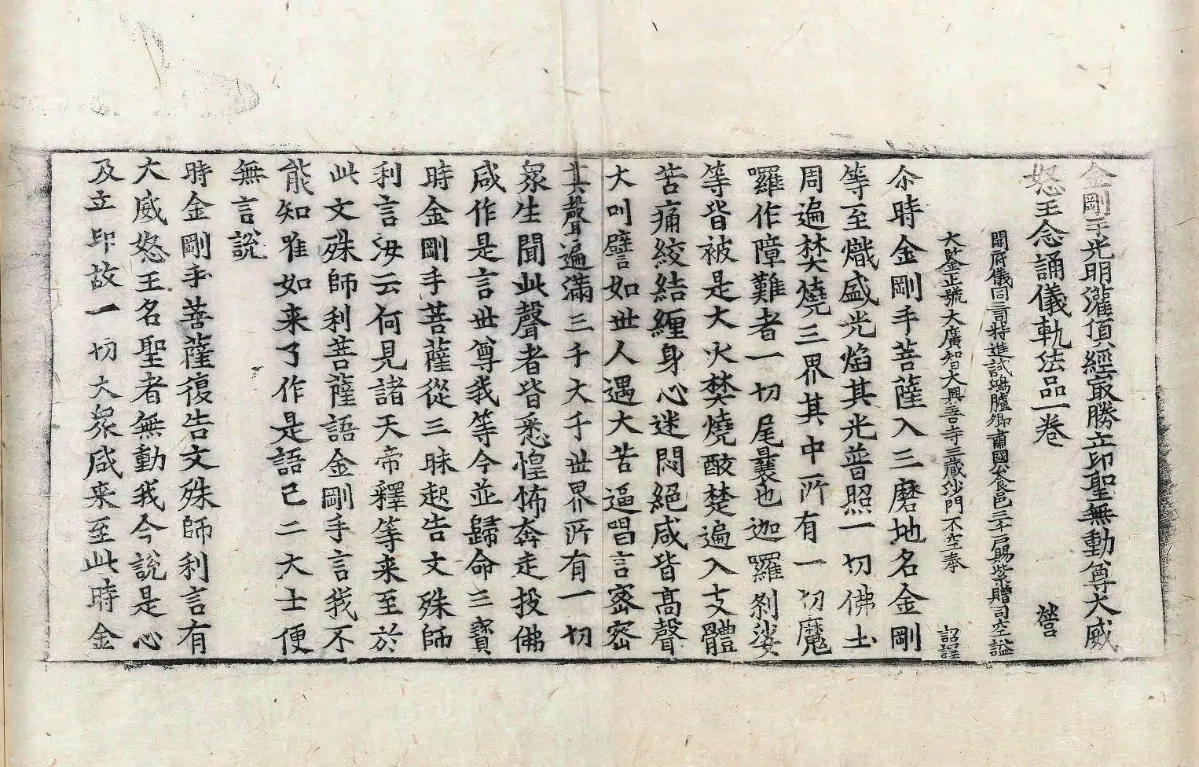 金剛手光明灌頂經冣勝立印聖無動尊大威
怒王念誦儀軌法品一卷 營
開府儀同三司特進試鴻臚卿肅國公食邑三千戶賜紫贈司空謚
大鑒正號大廣智大興善寺三藏沙門不空奉 詔譯
尒時金剛手菩薩入三磨地名金剛
等至熾盛光焰其光普照一切佛土
周遍焚燒三界其中所有一切魔
羅作障難者一切尾曩也迦羅剎娑
等皆被是大火焚燒酸楚遍入支體
苦痛絞結纏身心迷悶絕咸皆高聲
大叫譬如世人遇大苦逼唱言密密
其聲遍滿三千大千世界所有一切
衆生聞此聲者皆悉惶怖奔走投佛
咸作是言世尊我等今並歸命三寳
時金剛手菩薩從三昧起告文殊師
利言汝云何見諸天帝釋等来至於
此文殊師利菩薩語金剛手言我不
能知唯如来了作是語已二大士便
無言說
時金剛手菩薩復告文殊師利言有
大威怒王名聖者無動我今說是心
及立印故一切大衆咸来至此時金